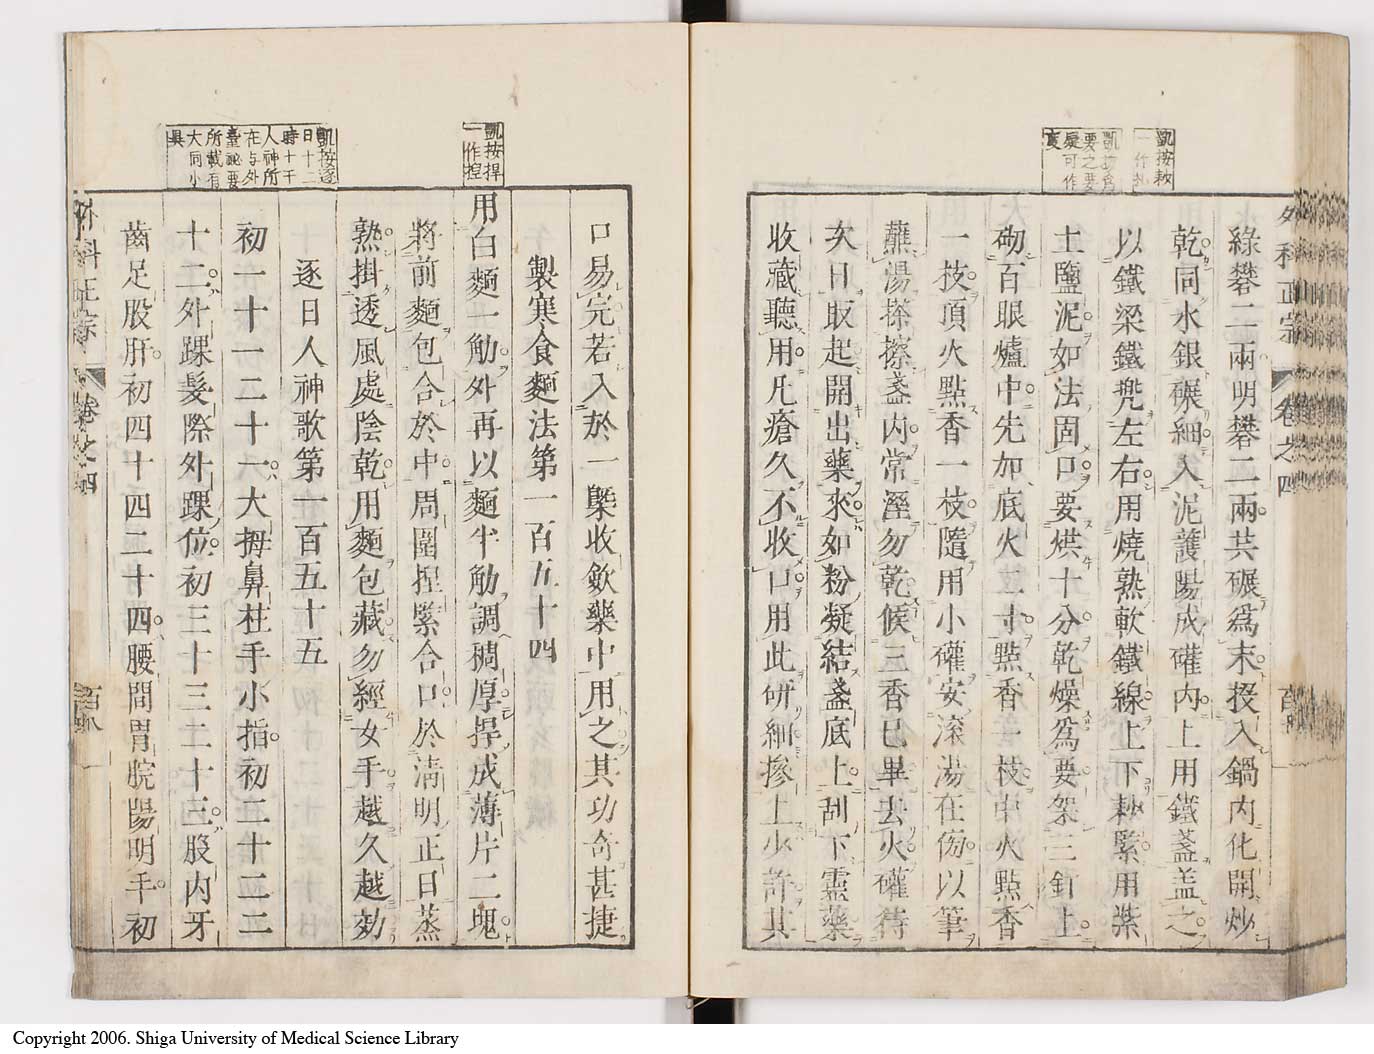 凱按敉
一作扎
凱按食
要之要
疑可作
寛
外科正宗
卷之四
綠礬二兩明礬二兩共碾爲末投入鍋内化開炒
乾同水銀碾細入泥護陽成礶内上用鐵盞盖之
以鐵梁鐵兠左右用燒熟軟鐵線上下𢾾緊用紫
土鹽泥如法固口要烘十分乾燥爲要架三釘上
砌百眼爐中先加底火二寸㸃香一枝中火㸃香
一枝頂火㸃香一枝隨用小礶安滚湯在傍以筆
蘸湯搽擦盞内常溼勿乾候三香已畢去火礶待
次日取起開出藥來如粉凝結盞底上刮下靈藥
收藏聽用凡瘡久不收口用此研細摻上少許其
凱按捍
一作揑
凱按逐
日十二
時十干
人神所
在与外
臺祕要
所載有
大同小
異
口易完若入於一槩收歛藥中用之其功奇甚捷
製寒食麵法第一百五十四
用白麵一觔外再以麵半觔調稠厚捍成薄片二塊
將前麵包合於中周圍捏緊合口於淸明正日蒸
熟掛透風處陰乾用麵包藏勿經女手越久越効
逐日人神歌第一百五十五
初一十一二十一大拇鼻柱手小指初二十二二
十二外踝髮際外踝位初三十三二十三股内牙
齒足股肝初四十四二十四腰間胃脘陽明手初
外科正宗
卷之四
Copyright 2006. Shiga University of Medical Science Library